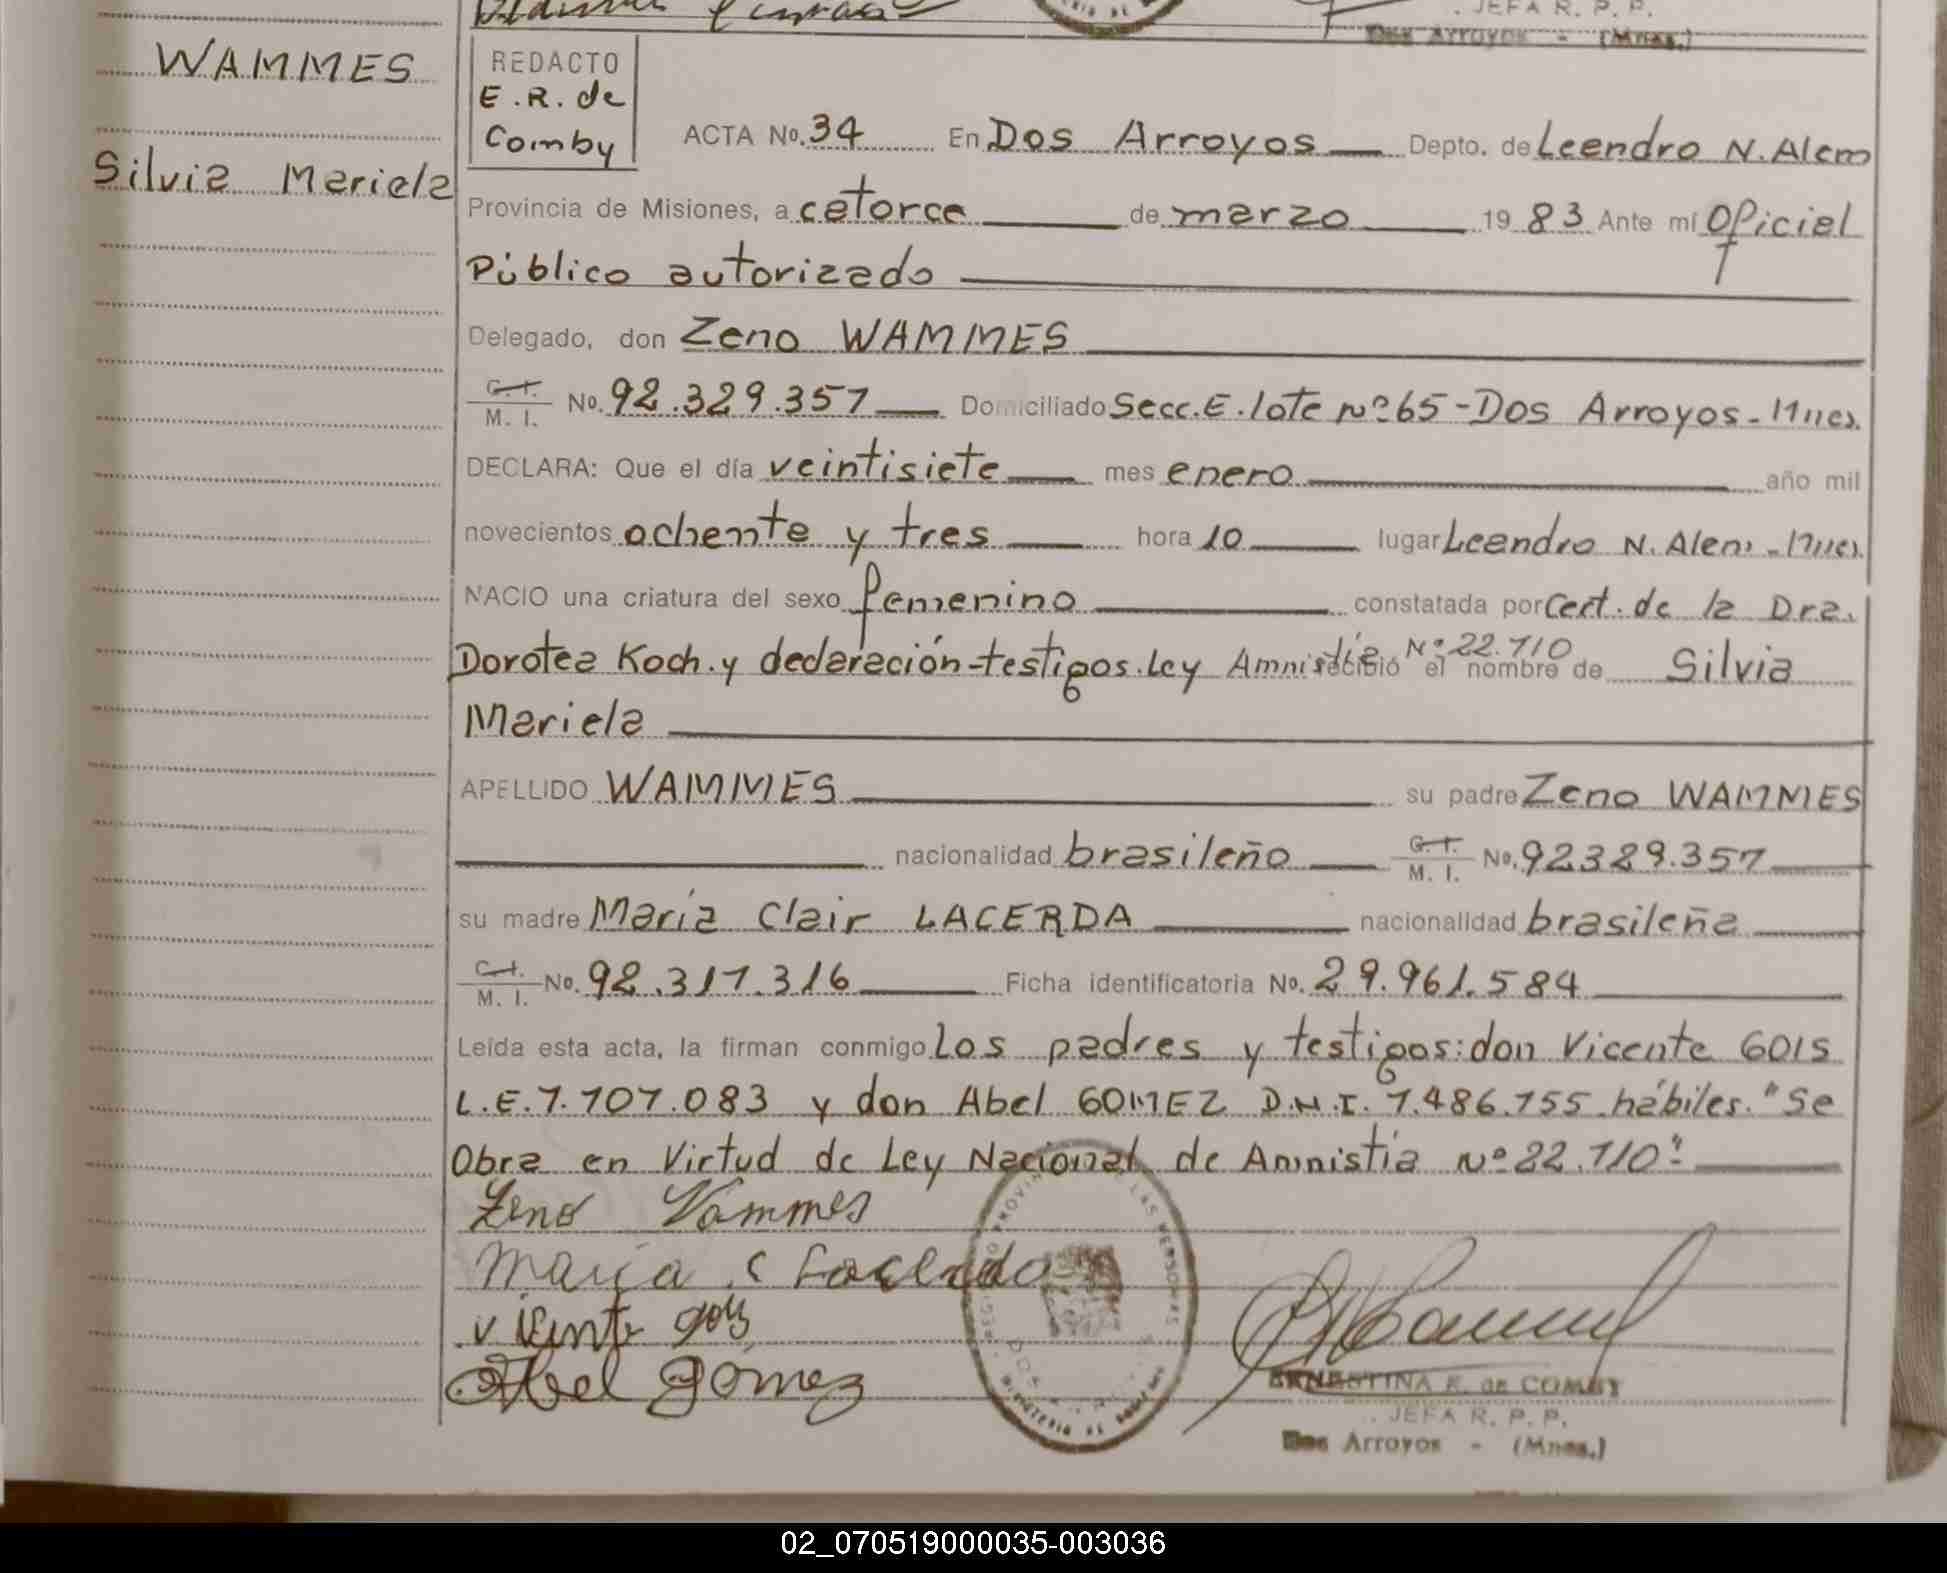 JEFA R. P. P.
Dos Arroyos - (Mnes.)
WAMMES
Silvia Mariela
REDACTO
E.R. de
Comby
ACTA No. 34 En Dos Arroyos Depto. de Leandro N. Alem
Provincia de Misiones, a catorce de marzo 19 83 Ante mí Oficial
Público autorizado
Delegado, don Zeno WAMMES
C. I. M. I. No. 92.329.357 Domiciliado Secc. E. lote Nº 65 - Dos Arroyos - Mnes.
DECLARA: Que el día veintisiete mes enero año mil
novecientos ochenta y tres hora 10 lugar Leandro N. Alem - Mnes.
NACIO una criatura del sexo femenino constatada por Cert. de la Dra.
Dorotea Koch. y declaración-testigos. Ley Amnistía Nº 22.710 recibió el nombre de Silvia
Mariela
APELLIDO WAMMES su padre Zeno WAMMES
nacionalidad brasileño C. I. M. I. No. 92329.357
su madre María Clair LACERDA nacionalidad brasileña
C. I. M. I. No. 92.317.316 Ficha identificatoria No. 29.961.584
Leída esta acta, la firman conmigo los padres y testigos: don Vicente GOIS
L.E. 7.707.083 y don Abel GOMEZ D.N.I. 7.486.755 hábiles. "Se
Obra en Virtud de Ley Nacional de Amnistía Nº 22.710".
Zeno Wammes
Maria C Lacerda
Vicente gois
Abel Gomez
ERNESTINA R. de COMBY
JEFA R. P. P.
Dos Arroyos - (Mnes.)
02_070519000035-003036